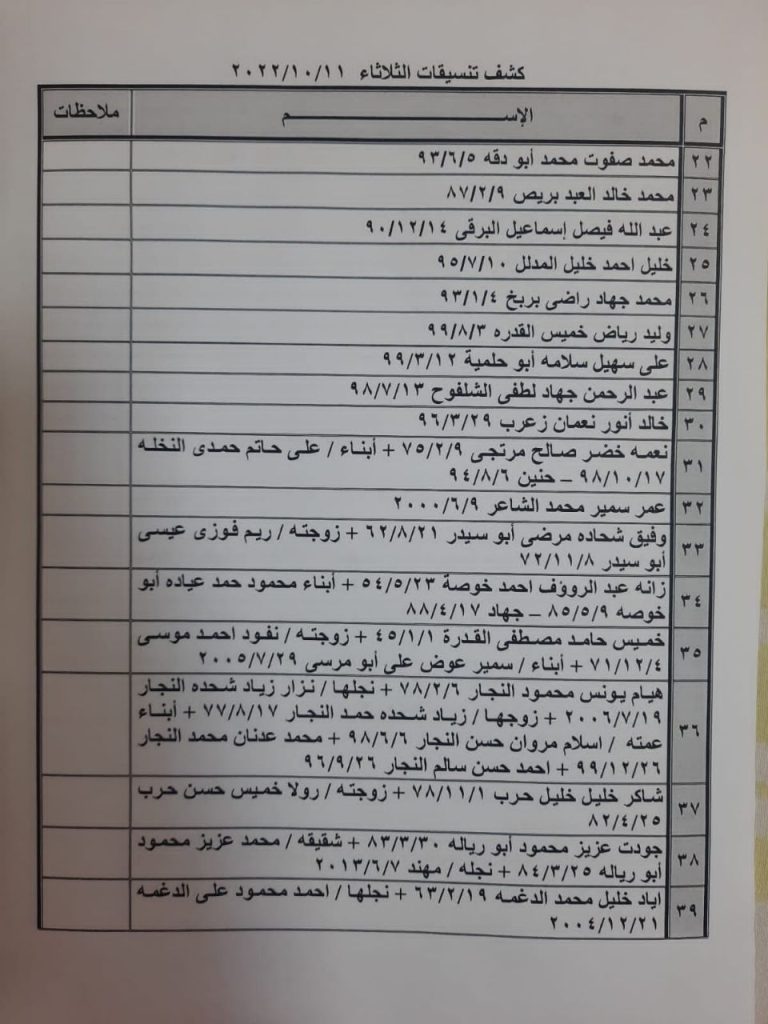 كشف تنسيقات الثلاثاء ٢٠٢٢/١٠/١١
م الإســـــــــــــــم ملاحظات
٢٢ محمد صفوت محمد أبو دقه ٩٣/٦/٥
٢٣ محمد خالد العبد بريص ٨٧/٢/٩
٢٤ عبد الله فيصل إسماعيل البرقى ٩٠/١٢/١٤
٢٥ خليل احمد خليل المدلل ٩٥/٧/١٠
٢٦ محمد جهاد راضى بربخ ٩٣/١/٤
٢٧ وليد رياض خميس القدره ٩٩/٨/٣
٢٨ على سهيل سلامه أبو حلمية ٩٩/٣/١٢
٢٩ عبد الرحمن جهاد لطفى الشلفوح ٩٨/٧/١٣
٣٠ خالد أنور نعمان زعرب ٩٦/٣/٢٩
٣١ نعمه خضر صالح مرتجى ٧٥/٢/٩ + أبناء / على حاتم حمدى النخله
٩٨/١٠/١٧ – حنين ٩٤/٨/٦
٣٢ عمر سمير محمد الشاعر ٢٠٠٠/٦/٩
٣٣ وفيق شحاده مرضى أبو سيدر ٦٢/٨/٢١ + زوجته / ريم فوزى عيسى
أبو سيدر ٧٢/١١/٨
٣٤ زانه عبد الروؤف احمد خوصة ٥٤/٥/٢٣ + أبناء محمود حمد عياده أبو
خوصه ٨٥/٥/٩ – جهاد ٨٨/٤/١٧
٣٥ خميس حامد مصطفى القدرة ٤٥/١/١ + زوجته / نفود احمد موسى
٧١/١٢/٤ + أبناء / سمير عوض على أبو مرسى ٢٠٠٥/٧/٢٩
٣٦ هيام يونس محمود النجار ٧٨/٢/٦ + نجلها / نزار زياد شحده النجار
٢٠٠٦/٧/١٩ + زوجها / زياد شحده حمد النجار ٧٧/٨/١٧ + أبناء
عمته / اسلام مروان حسن النجار ٩٨/٦/٦ + محمد عدنان محمد النجار
٩٩/١٢/٢٦ + احمد حسن سالم النجار ٩٦/٩/٢٦
٣٧ شاكر خليل خليل حرب ٧٨/١١/١ + زوجته / رولا خميس حسن حرب
٨٢/٤/٢٥
٣٨ جودت عزيز محمود أبو رياله ٨٣/٣/٣٠ + شقيقه / محمد عزيز محمود
أبو رياله ٨٤/٣/٢٥ + نجله / مهند ٢٠١٣/٦/٧
٣٩ اياد خليل محمد الدغمه ٦٣/٢/١٩ + نجلها / احمد محمود على الدغمه
٢٠٠٤/١٢/٢١